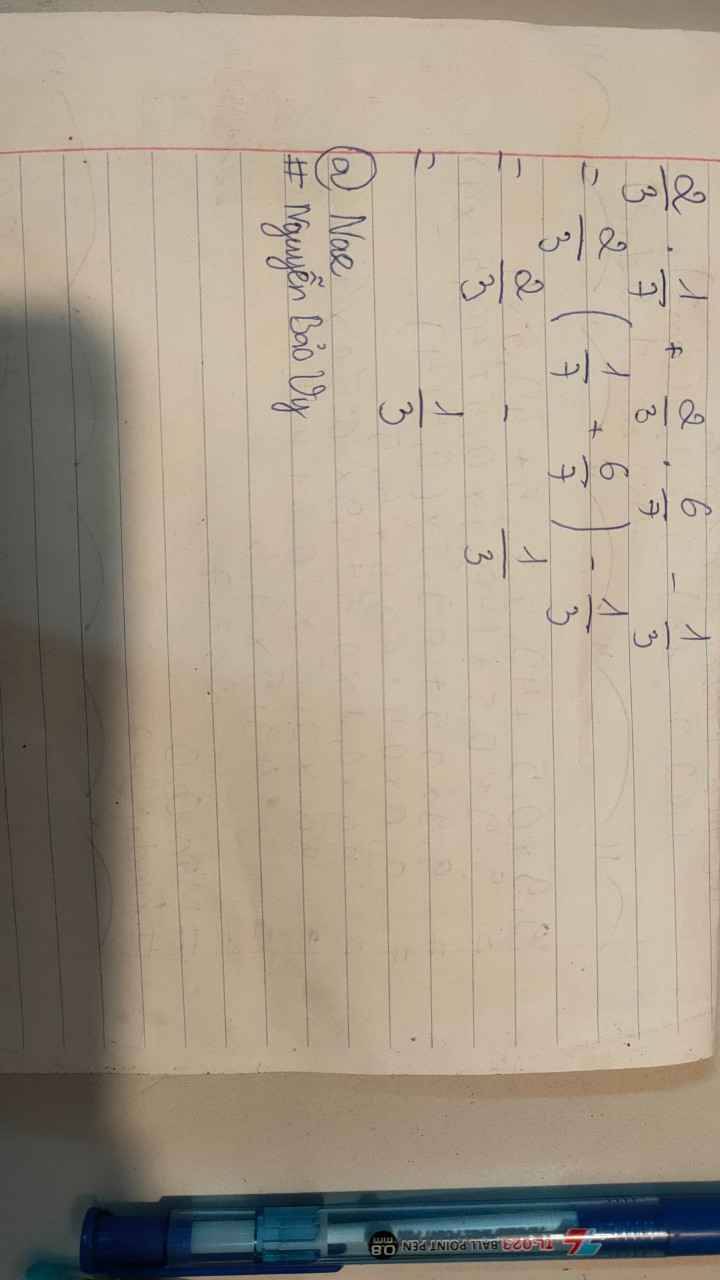 2/3 . 1/7 + 2/3 . 6/7 - 1/3
= 2/3 (1/7 + 6/7) - 1/3
= 2/3 - 1/3
= 1/3
@ Nae
# Nguyễn Bảo Vy
TL-023 BALL POINT PEN 0.8 mm